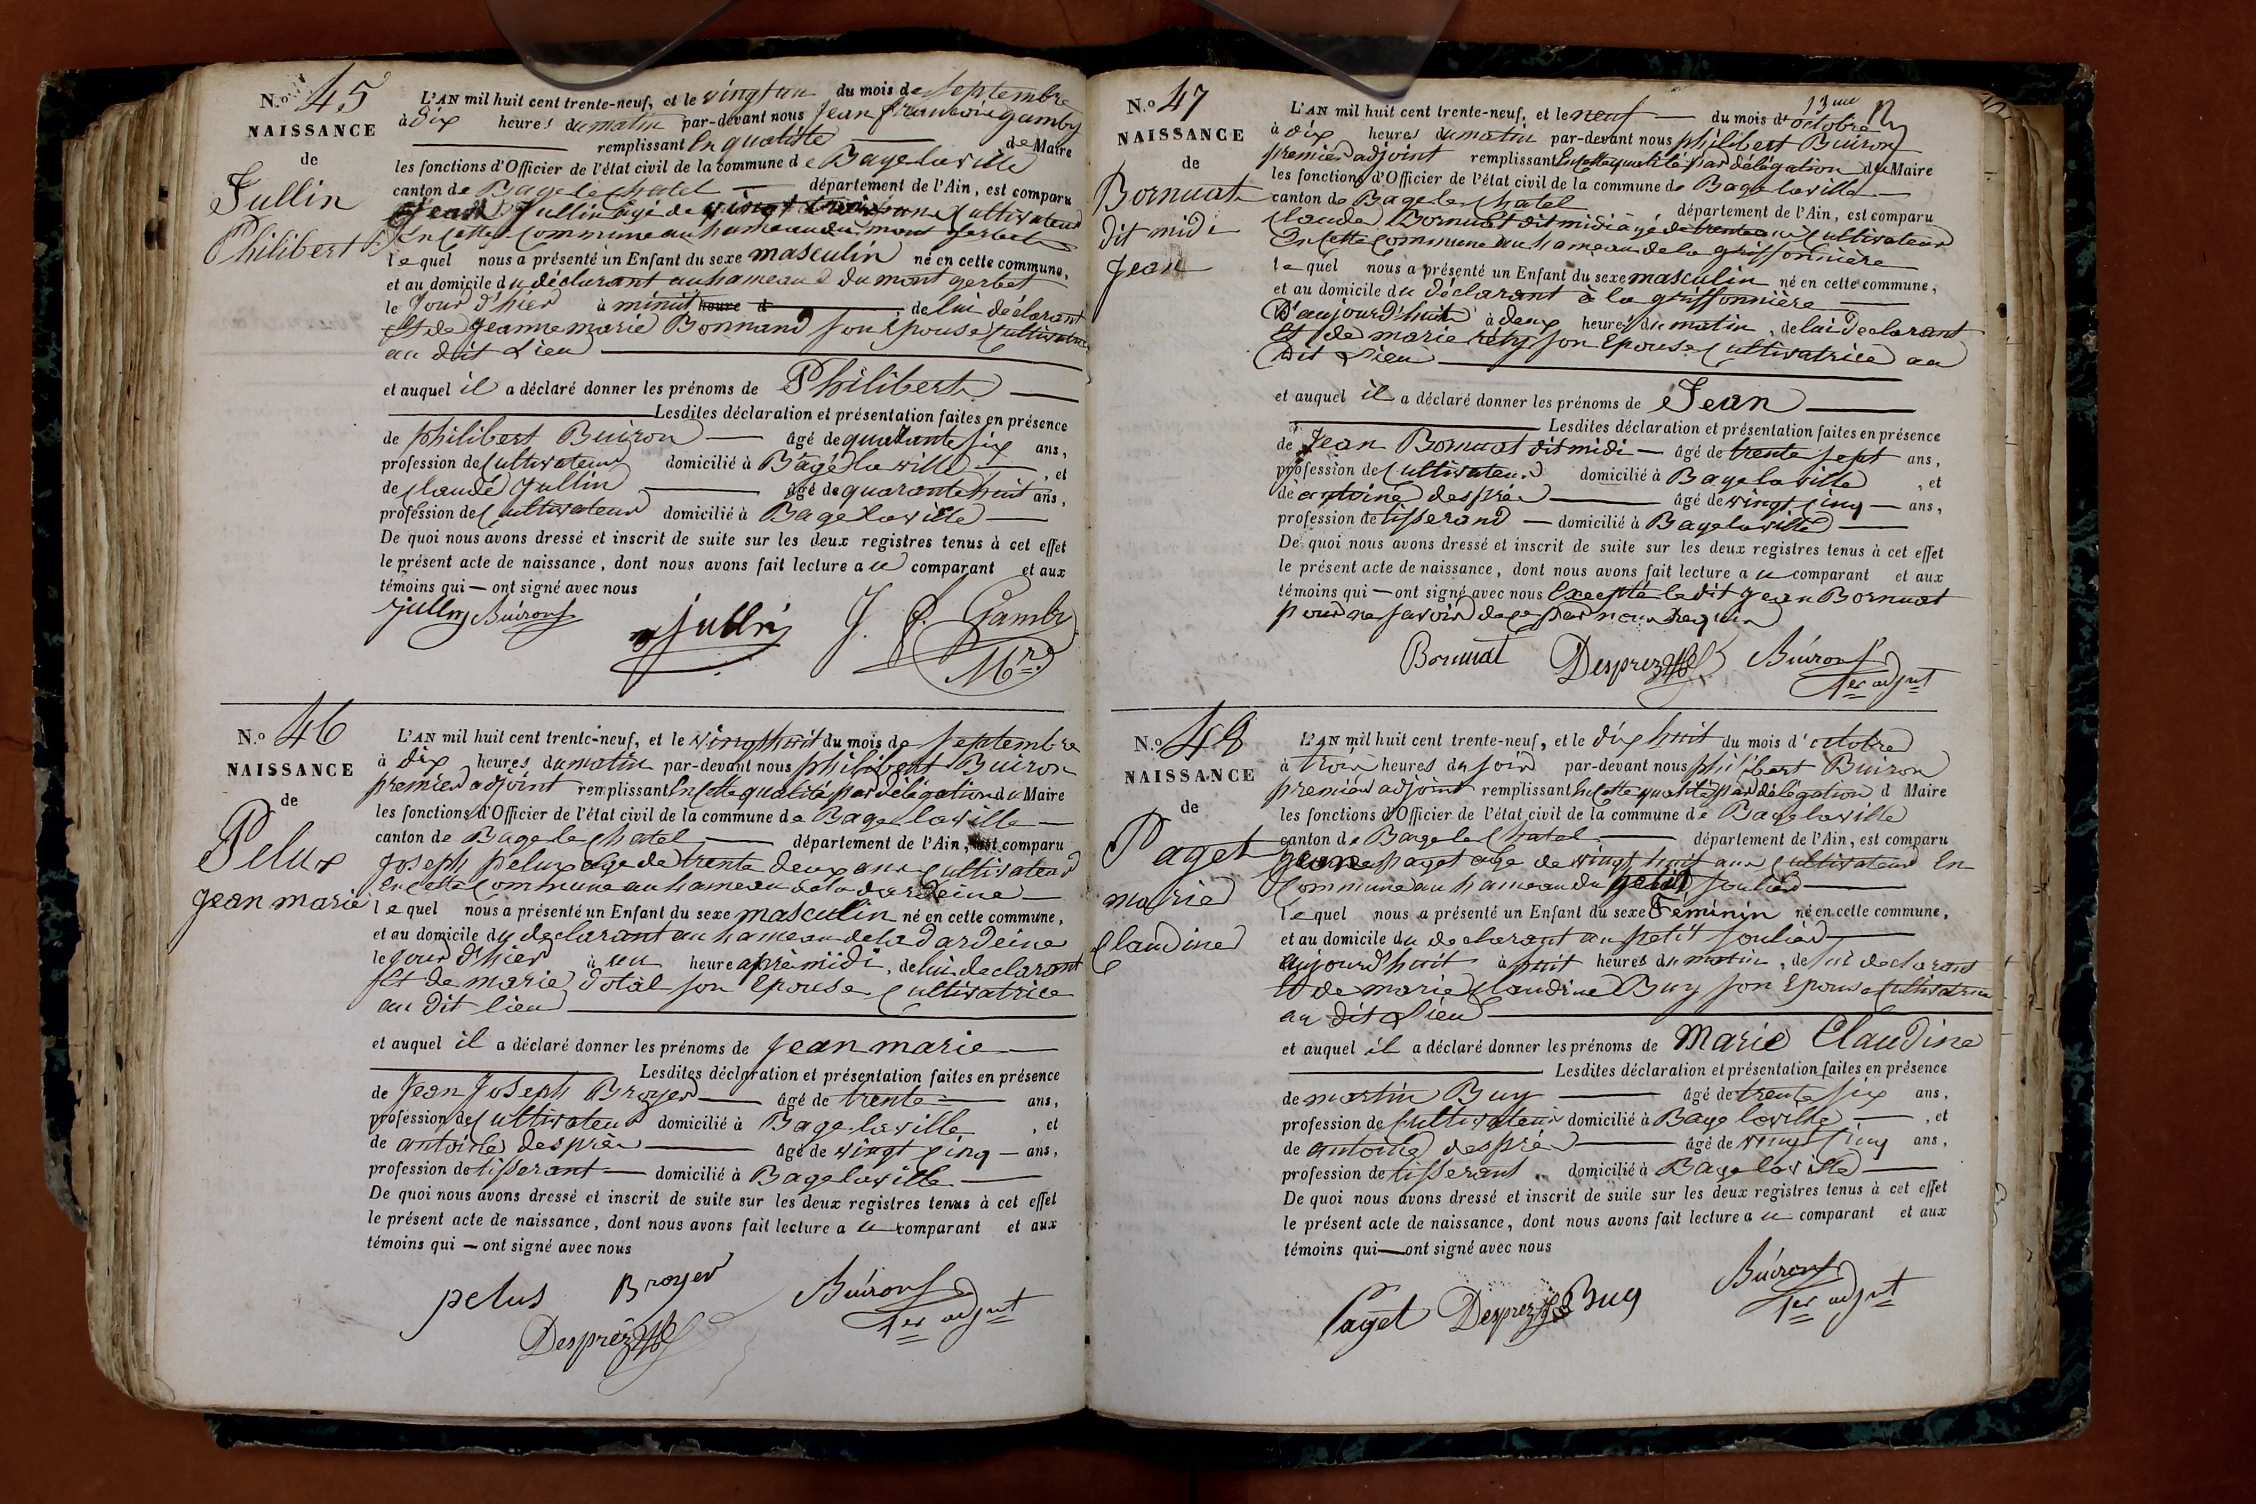 N.o 45
NAISSANCE
de
Jullin
Philibert
L'AN mil huit cent trente-neuf, et le vingt un du mois de Septembre
à dix heures du matin par-devant nous Jean françois gamby
remplissant En qualité de Maire
les fonctions d'Officier de l'état civil de la commune de Bagelaville
canton de Bage le chatel département de l'Ain, est comparu
Jean Jullin âgé de vingt ans Cultivateur
En cette Commune au hameau du mont gerbet
lequel nous a présenté un Enfant du sexe masculin né en cette commune,
et au domicile du déclarant au hameau du mont gerbet
le Jour d'hier à minuit heure d de lui déclarant
Et de Jeanne marie Bonnand son Epouse Cultivatrice
au dit Lieu
et auquel il a déclaré donner les prénoms de Philibert
Lesdites déclaration et présentation faites en présence
de philibert Buiron âgé de quarante six ans,
profession de Cultivateur domicilié à Bagé la ville, et
de Claude Jullin âgé de quarante huit ans,
profession de Cultivateur domicilié à Bagé laville
De quoi nous avons dressé et inscrit de suite sur les deux registres tenus à cet effet
le présent acte de naissance, dont nous avons fait lecture au comparant et aux
témoins qui — ont signé avec nous
jullin Buiron jullin J. f. Gamby
Mre
N.o 46
NAISSANCE
de
Pelux
Jean marie
L'AN mil huit cent trente-neuf, et le vingt huit du mois de Septembre
à dix heures du matin par-devant nous philibert Buiron
premier adjoint remplissant En cette qualité par délégation du Maire
les fonctions d'Officier de l'état civil de la commune de Bagelaville
canton de Bage le chatel département de l'Ain, est comparu
Joseph pelux âgé de trente deux ans Cultivateur
En cette Commune au hameau de la dardeine
lequel nous a présenté un Enfant du sexe masculin né en cette commune,
et au domicile du declarant au hameau de la dardeine
le jour d'hier à un heure après midi, de lui declarant
Et de marie dotal son Epouse Cultivatrice
au dit lieu
et auquel il a déclaré donner les prénoms de Jean marie
Lesdites déclaration et présentation faites en présence
de Jean Joseph Broyer âgé de trente ans,
profession de Cultivateur domicilié à Bagelaville, et
de antoine desprès âgé de vingt cinq — ans,
profession de tisserant domicilié à Bagelaville
De quoi nous avons dressé et inscrit de suite sur les deux registres tenus à cet effet
le présent acte de naissance, dont nous avons fait lecture au comparant et aux
témoins qui — ont signé avec nous
pelus Broyer Buiron
Desprez 1er adjnt
N.o 47
NAISSANCE
de
Bornuat
dit midi
Jean
13me
L'AN mil huit cent trente-neuf, et le neuf du mois d'octobre
à dix heures du matin par-devant nous philibert Buiron
premier adjoint remplissant En cette qualité par délégation du Maire
les fonctions d'Officier de l'état civil de la commune de Bagelaville
canton de Bage le chatel département de l'Ain, est comparu
Claude Bornuat dit midi âgé de trente ans Cultivateur
En cette Commune au hameau de la griffonnière
lequel nous a présenté un Enfant du sexe masculin né en cette commune,
et au domicile du déclarant à la griffonnière
d'aujourd'huit à deux heures du matin, de lui declarant
Et de marie réty son Epouse Cultivatrice au
dit Lieu
et auquel il a déclaré donner les prénoms de Jean
Lesdites déclaration et présentation faites en présence
de Jean Bornuat dit midi — âgé de trente sept ans,
profession de Cultivateur domicilié à Bagelaville, et
de antoine desprès âgé de vingt cinq — ans,
profession de tisserand — domicilié à Bagelaville
De quoi nous avons dressé et inscrit de suite sur les deux registres tenus à cet effet
le présent acte de naissance, dont nous avons fait lecture au comparant et aux
témoins qui — ont signé avec nous Excepté ledit Jean Bornuat
pour ne savoir de ce par nous Requis
Bornuat Desprez Buiron
1er adjnt
N.o 48
NAISSANCE
de
Paget
marie
Claudine
L'AN mil huit cent trente-neuf, et le dix huit du mois d'octobre
à trois heures du soir par-devant nous philibert Buiron
premier adjoint remplissant En cette qualité par délégation d Maire
les fonctions d'Officier de l'état civil de la commune de Bagelaville
canton de Bage le Chatel département de l'Ain, est comparu
paget âgé de vingt huit ans Cultivateur En
Commune au hameau du petit soulier
lequel nous a présenté un Enfant du sexe Féminin né en cette commune,
et au domicile du declarant au petit soulier
aujourd'huit à huit heures du matin, de lui declarant
Et de marie Claudine Buy son Epouse Cultivatrice
au dit Lieu
et auquel il a déclaré donner les prénoms de Marie Claudine
Lesdites déclaration et présentation faites en présence
de martin Buy âgé de trente six ans,
profession de Cultivateur domicilié à Bage laville, et
de antoine desprès âgé de vingt cinq ans,
profession de tisserant domicilié à Bagelaville
De quoi nous avons dressé et inscrit de suite sur les deux registres tenus à cet effet
le présent acte de naissance, dont nous avons fait lecture au comparant et aux
témoins qui — ont signé avec nous
Paget Desprez Buy Buiron
1er adjnt